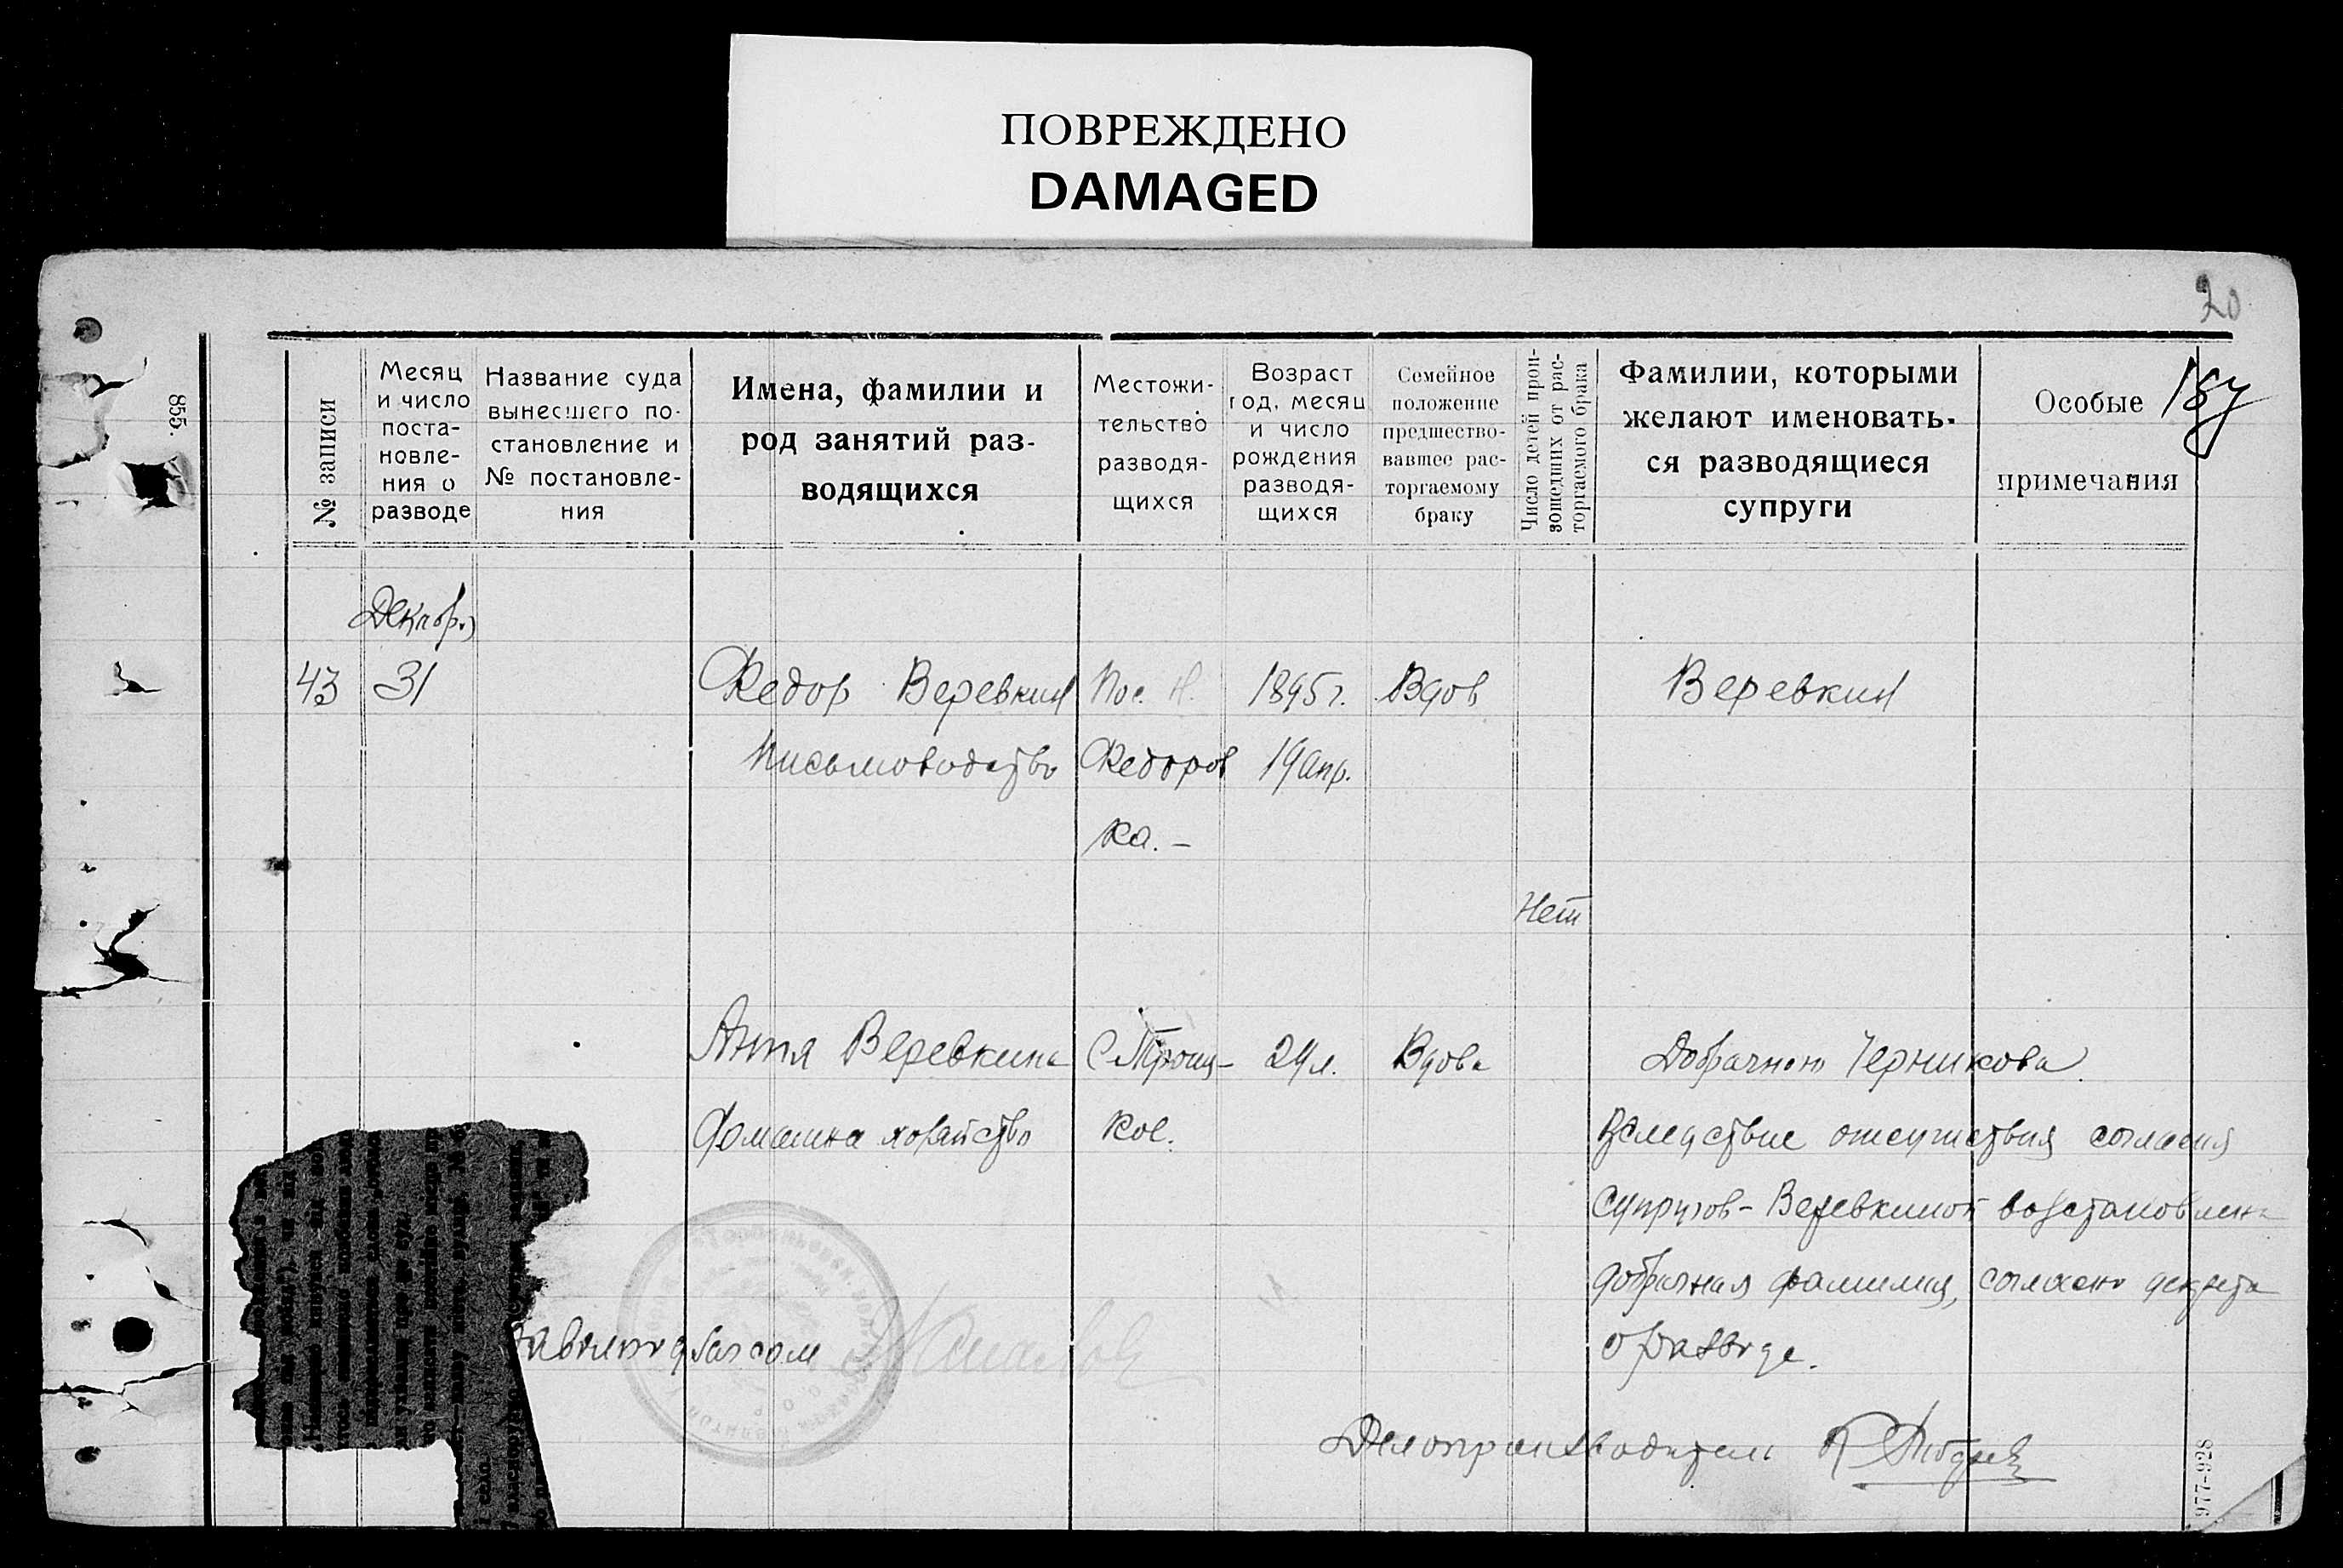 ПОВРЕЖДЕНО
DAMAGED
20
855.
№ записи
Месяц и число поста-новле-ния о разводе
Название суда вынесшего по-становление и № постановле-ния
Имена, фамилии и род занятий раз-водящихся
Местожи-тельство разводя-щихся
Возраст год, месяц и число рождения разводя-щихся
Семейное положение предшество-вавшее рас-торгаемому браку
Число детей прои-зошедших от рас-торгаемого брака
Фамилии, которыми желают именовать-ся разводящиеся супруги
Особые примечания
Декабр.
43 31 Федор Веревкин Пос. Н. 1895 г. Вдов Веревкин
Письмоводство Федоров 19 апр.
ка. –
Нет
Анна Веревкина С Троиц- 24 л. Вдова Добрачною Черникова.
Домашна хозяйство кое. Вследствие отсутствия согласия
супругов - Веревкиной восстановлена
добрачная фамилия, согласно декрета
о разводе.
Делопроизводитель
977-928